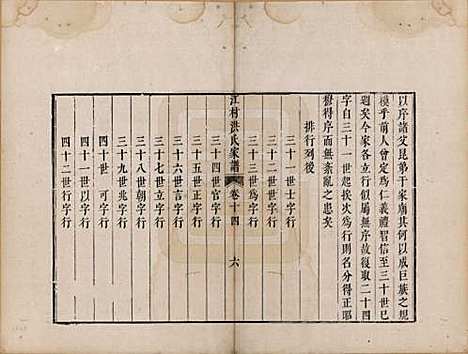 以序諸父昆弟于家廟其何以成巨族之規
模乎前人曾定為仁義禮智信至三十世已
週矣今家各立行似屬無序故復取二十四
字自三十一世起挨次為行則名分得正昭
穆得序而無紊亂之患矣
排行列後
三十一世士字行
三十三世為字行
江村洪氏家譜
卷十四
六
三十四世官字行
三十五世正字行
三十六世言字行
三十七世立字行
三十八世朝字行
三十九世兆字行
四十世 可字行
四十一世以字行
四十二世行字行